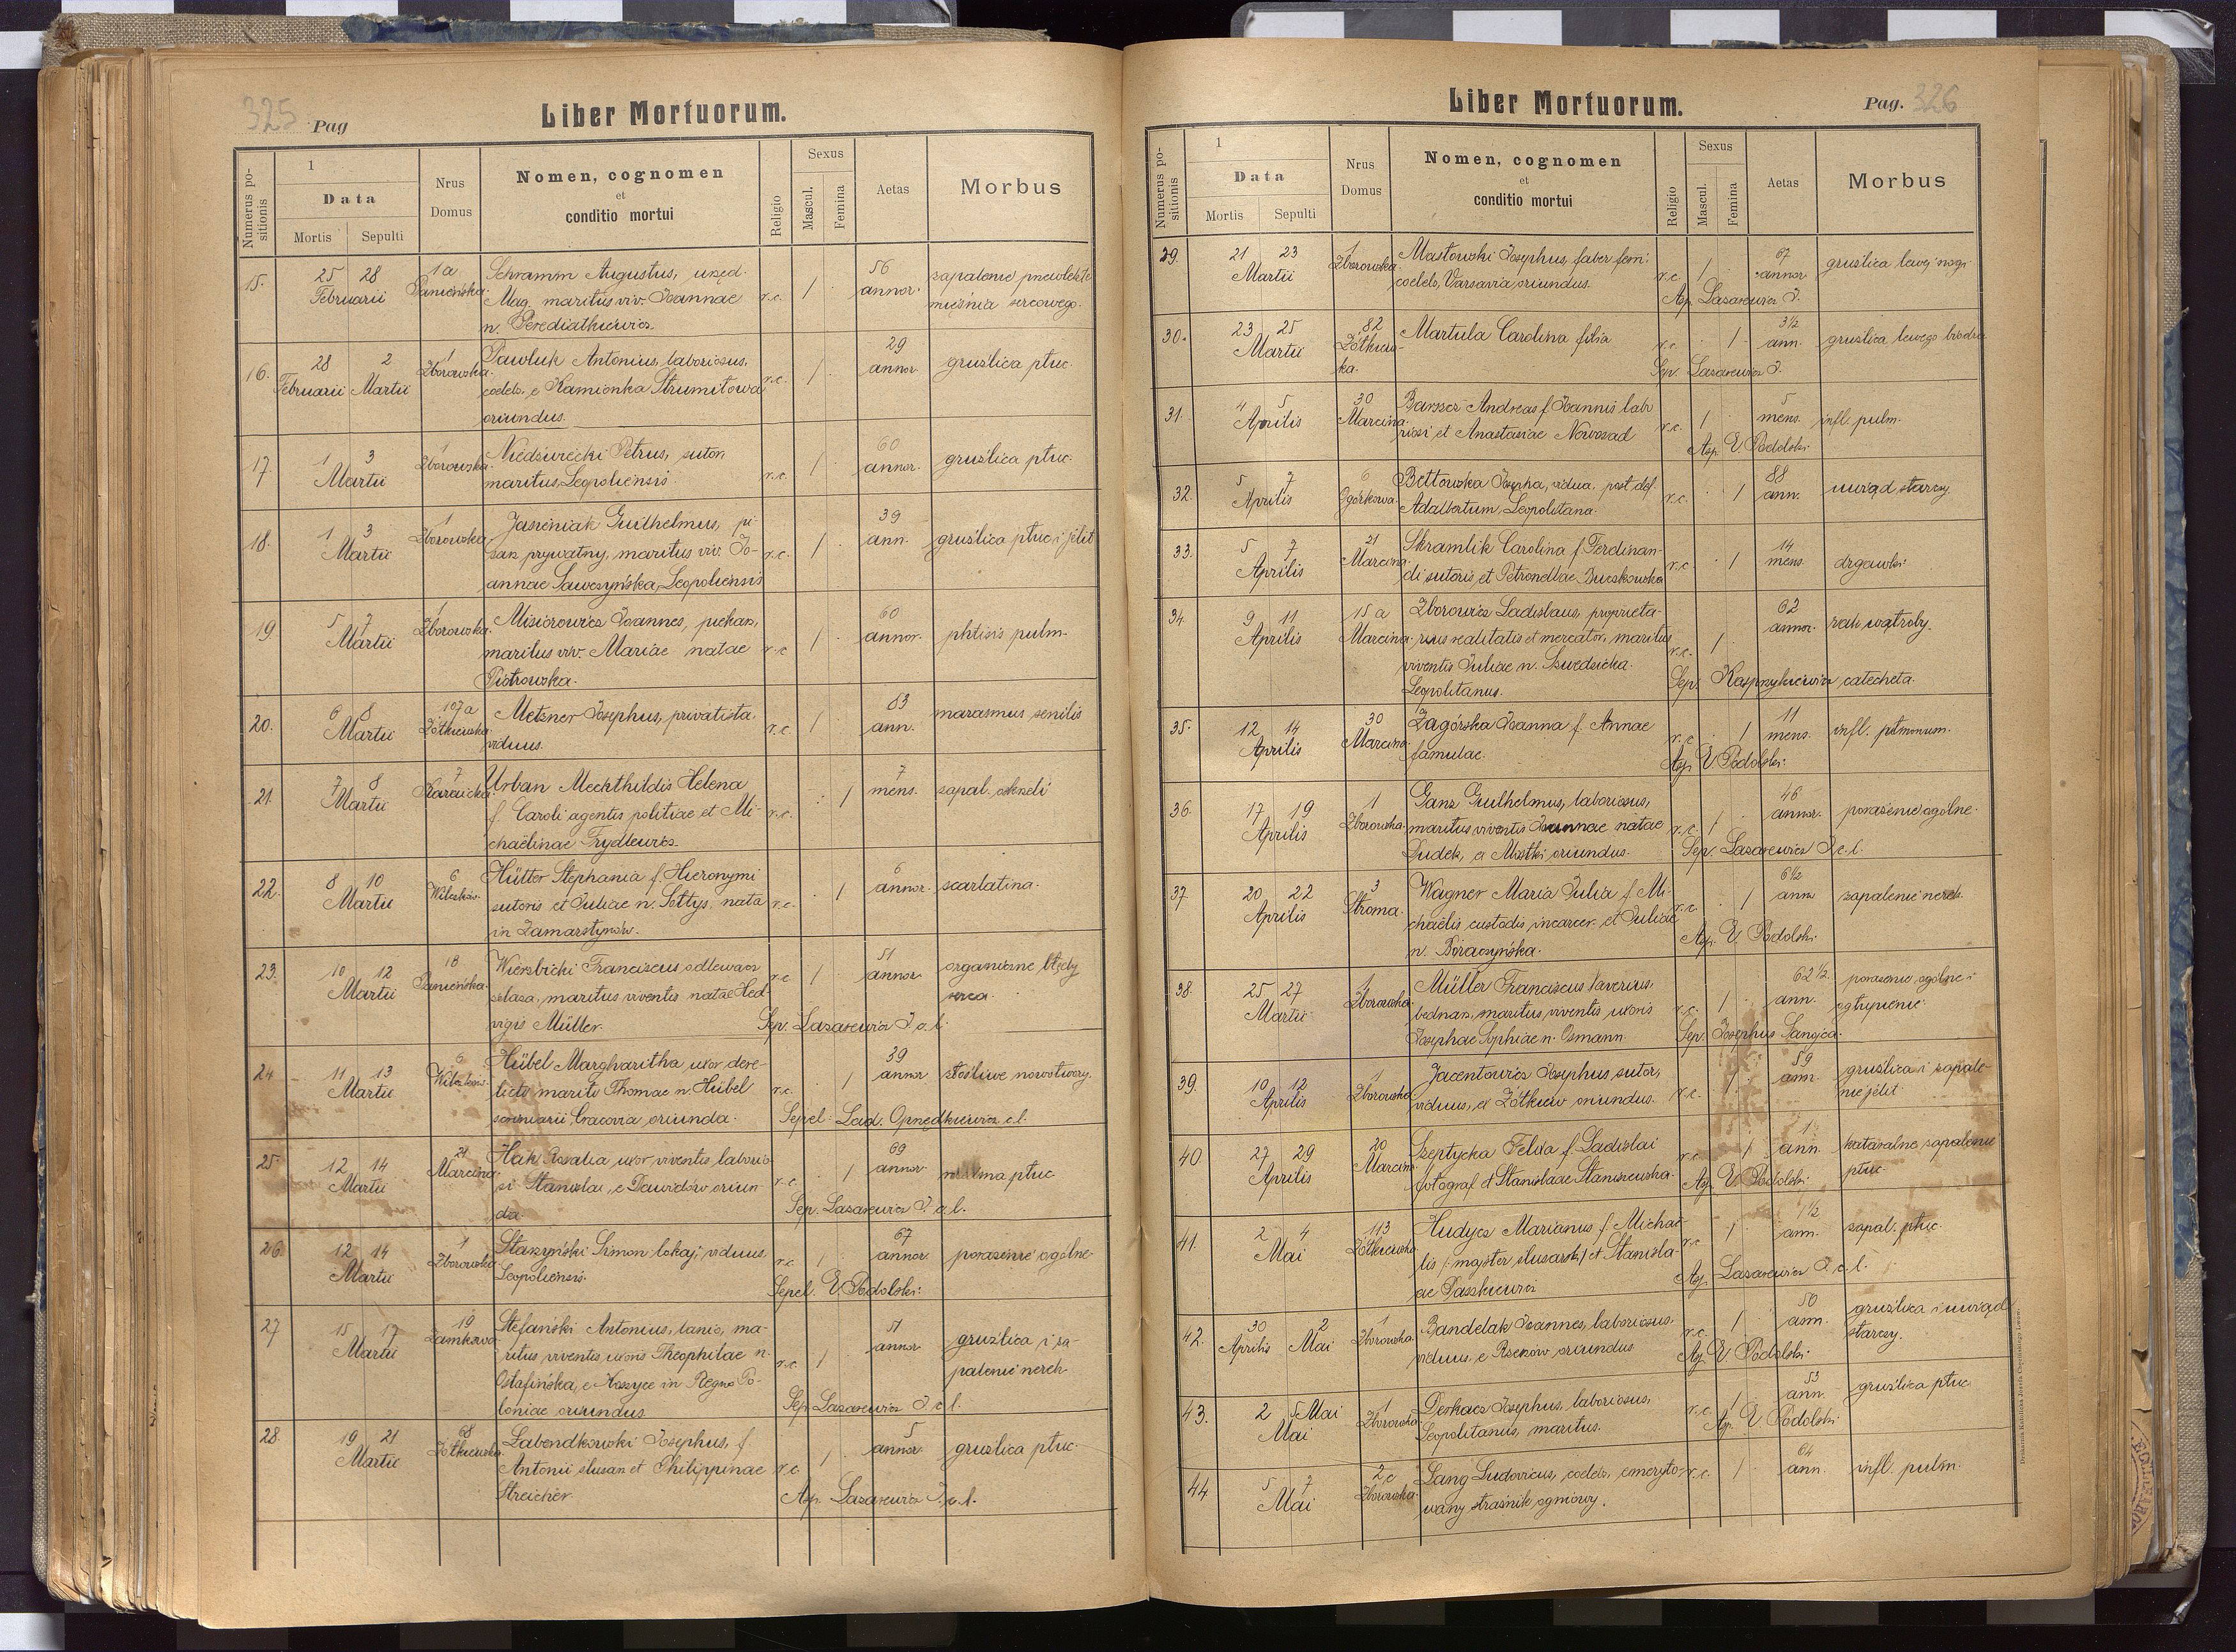 325 Pag
Liber Mortuorum.
Numerus positionis
1
Data
Mortis Sepulti
Nrus
Domus
Nomen, cognomen
et
conditio mortui
Religio
Sexus
Mascul.
Femina
Aetas
Morbus
15. 25 28 1a Schramm Augustus, urzęd. 56 zapalenie
Februarii Panieńska Mag. maritus viv. Joannae r.c. 1 annor. mięśnia sercowego.
16. 28 2 1 Pawluk Antonius, laboriosus, 29
Februarii Martii Zborowska coelebs, e Kamionka Strumiłowa r.c. 1 annor. gruźlica płuc.
oriundus.
17. 1 3 1 Niedzwiecki Petrus, sutor, 60
Martii Zborowska maritus, Leopoliensis. r.c. 1 annor. gruźlica płuc.
18. 1 3 1 Jasieniak Guilhelmus, pi- 39
Martii Zborowska sarz prywatny, maritus viv. Jo- r.c. 1 ann. gruźlica płuc i jelit
annae Sawczyńska, Leopoliensis
19. 5 7 1 Misiorowicz Joannes, piekarz, 60
Martii Zborowska maritus viv. Mariae natae r.c. 1 annor. phtisis pulm.
Piotrowska.
20. 6 8 107a Metzner Josephus, privatista, 83
Martii Żółkiewska viduus. r.c. 1 ann. marasmus senilis
21 7 8 7 Urban Mechthildis Helena 7
Martii f. Caroli agentis politiae et Mi- r.c. 1 mens. zapal. oskrzeli
chaëlinae Frydlewicz.
22. 8 10 6 Hütter Stephania f. Hieronymi 6
Martii sutoris et Juliae n. Sołtys, nata r.c. 1 annor. scarlatina.
in Zamarstynów.
23. 10 12 18 Wierzbicki Franciscus odlewacz 51 organiczne błędy
Martii Panieńska żelaza, maritus viventis natae Hed- r.c. 1 annor. serca.
vigis Müller. Sep. Lazarewicz J. c. l.
24 11 13 6 Hübel Margharitha uxor dere- 39
Martii licta marito Thomae n. Hübel r.c. 1 annor złośliwe nowotwory.
Cracovia oriunda. Sepel. Lad. c. l.
25 12 14 21 Hak Rosalia uxor viventis laborio- 69
Martii Marcina si Stanislai, e Dawidów oriun- r.c. 1 annor płuc
da. Sep. Lazarewicz J. c. l.
26. 12 14 1 Staszyński Simon lokaj, viduus 67
Martii Zborowska Leopoliensis. r.c. 1 annor. porażenie ogólne.
Sepel. V. Podolski.
27 15 17 19 Stefański Antonius, lanio, ma- 51 gruźlica i za-
Martii Zamkowa ritus viventis uxoris Theophilae n. r.c. 1 annor palenie nerek
Ostafińska, e Koszyce in Regno Po-
loniae oriundus. Sep. Lazarewicz J. c. l.
28. 19 21 68 Łabendkowski Josephus, f. 5
Martii Żółkiewska Antonii slusarz et Philippinae r.c. 1 annor. gruźlica płuc.
Streicher. Asp. Lazarewicz J. c. l.
Liber Mortuorum.
Pag. 326
Numerus positionis
1
Data
Mortis Sepulti
Nrus
Domus
Nomen, cognomen
et
conditio mortui
Religio
Sexus
Mascul.
Femina
Aetas
Morbus
29. 21 23 1 Masłowski Josephus, faber ferri 67 gruźlica lewej nogi
Martii Zborowska coelebs, Varsavia oriundus. r.c. 1 annor.
Asp. Lazarewicz J.
30. 23 25 82 Martula Carolina filia 3½ gruźlica lewego biodra
Martii Żółkiews- r.c. 1 ann.
ka. Sep. Lazarewicz J.
31. 4 5 30 Andreas f. Joannis labo 5
Aprilis Marcina riosi et Anastasiae Nowosad r.c. 1 mens. infl. pulm.
Asp. V. Podolski.
32. 5 7 6 Bettowska Josepha, vidua, post def. 88 uwiąd starczy
Aprilis Ogórkowa Adalbertum, Leopolitana. r.c. 1 ann.
33. 5 7 21 Skramlik Carolina f. Ferdinan- 14
Aprilis Marcina di sutoris et Petronellae Buczkowska r.c. 1 mens. drgawki.
34. 9 11 15a Zborowicz Ladislaus, proprieta- 62 rak wątroby.
Aprilis Marcina rius realitatis et mercator, maritus r.c. 1 annor.
viventis Juliae n. Szwedzicka.
Leopolitanus. Sep. Kasprzykiewicz, catecheta.
35. 12 14 30 Zagórska Joanna f. Annae 11
Aprilis Marcina famulae. r.c. 1 mens. infl. pulmonum.
Asp. V. Podolski.
36. 17 19 1 Ganz Guilhelmus, laboriosus, 46
Aprilis Zborowska maritus viventis Joannae natae r.c. 1 annor. porażenie ogólne.
Dudek, e Mostki oriundus. Sep. Lazarewicz J. c. l.
37. 20 22 3 Wagner Maria Julia f. Mi- 6½
Aprilis Stroma chaëlis custodis incarcer. et Juliae r.c. 1 ann. zapalenie nerek.
n. Boraczyńska. Asp. V. Podolski
38. 25 27 1 Müller Franciscus Xaverius, 62½ porażenie ogólne i
Martii Zborowska bednarz, maritus viventis uxoris r.c. 1 ann. ogłupienie.
Josephae Sophiae n. Osmann Sep. Josephus
39. 10 12 1 Jacentowicz Josephus sutor, 59 gruźlica i zapale-
Aprilis Zborowska viduus, ex Żółkiew oriundus. r.c. 1 ann. nie jelit
40. 27 29 20 Szeptycka Felixa f. Ladislai 1 kataralne zapalenie
Aprilis Marcina fotograf et Stanislaae Staniszewska. r.c. 1 ann. płuc.
Asp. V. Podolski
41. 2 4 113 Hudycz Marianus f. Michaë- 1½ zapal. płuc.
Mai Żółkiewska lis (majster slusarski) et Stanisla- r.c. 1 ann.
ae Paszkiewicz Asp. Lazarewicz J. c. l.
42. 30 2 1 Bandelak Joannes, laboriosus, 50 gruźlica i uwiąd
Aprilis Mai Zborowska viduus, e Rzeszów oriundus r.c. 1 ann. starczy.
Asp. V. Podolski.
43. 2 5 Mai 1 Derkacz Josephus, laboriosus, 53 gruźlica płuc.
Mai Zborowska Leopolitanus, maritus. r.c. 1 ann.
Asp. V. Podolski
44 5 7 2c Lang Ludovicus, coelebs, emeryto- r.c. 1 64 infl. pulm.
Mai Zborowska wany strażnik ogniowy. ann.